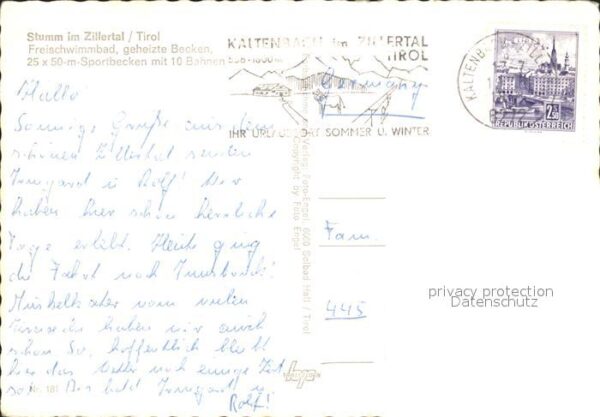 Stumm im Zillertal / Tirol
Freischwimmbad, geheizte Becken,
25 x 50-m-Sportbecken mit 10 Bahnen
KALTENBACH im ZILLERTAL
TIROL
IHR URLAUBSORT SOMMER U. WINTER
2.50
REPUBLIK ÖSTERREICH
Hallo
Sonnige Grüße aus dem
schönen Zillertal senden
Irmgard u. Rolf! Wir
haben hier schon herrliche
Tage erlebt. Heute ging
die Fahrt nach Innsbruck!
Muskelkater vom vielen
haben wir auch
schon. So, hoffentlich bleibt
hier das Wetter noch einige Zeit
so. Bis bald Irmgard u.
Rolf!
Germany
Fam.
445
Verlag Foto-Engel, 6060 Solbad Hall / Tirol
Copyright by Foto Engel
Nr. 181
privacy protection
Datenschutz